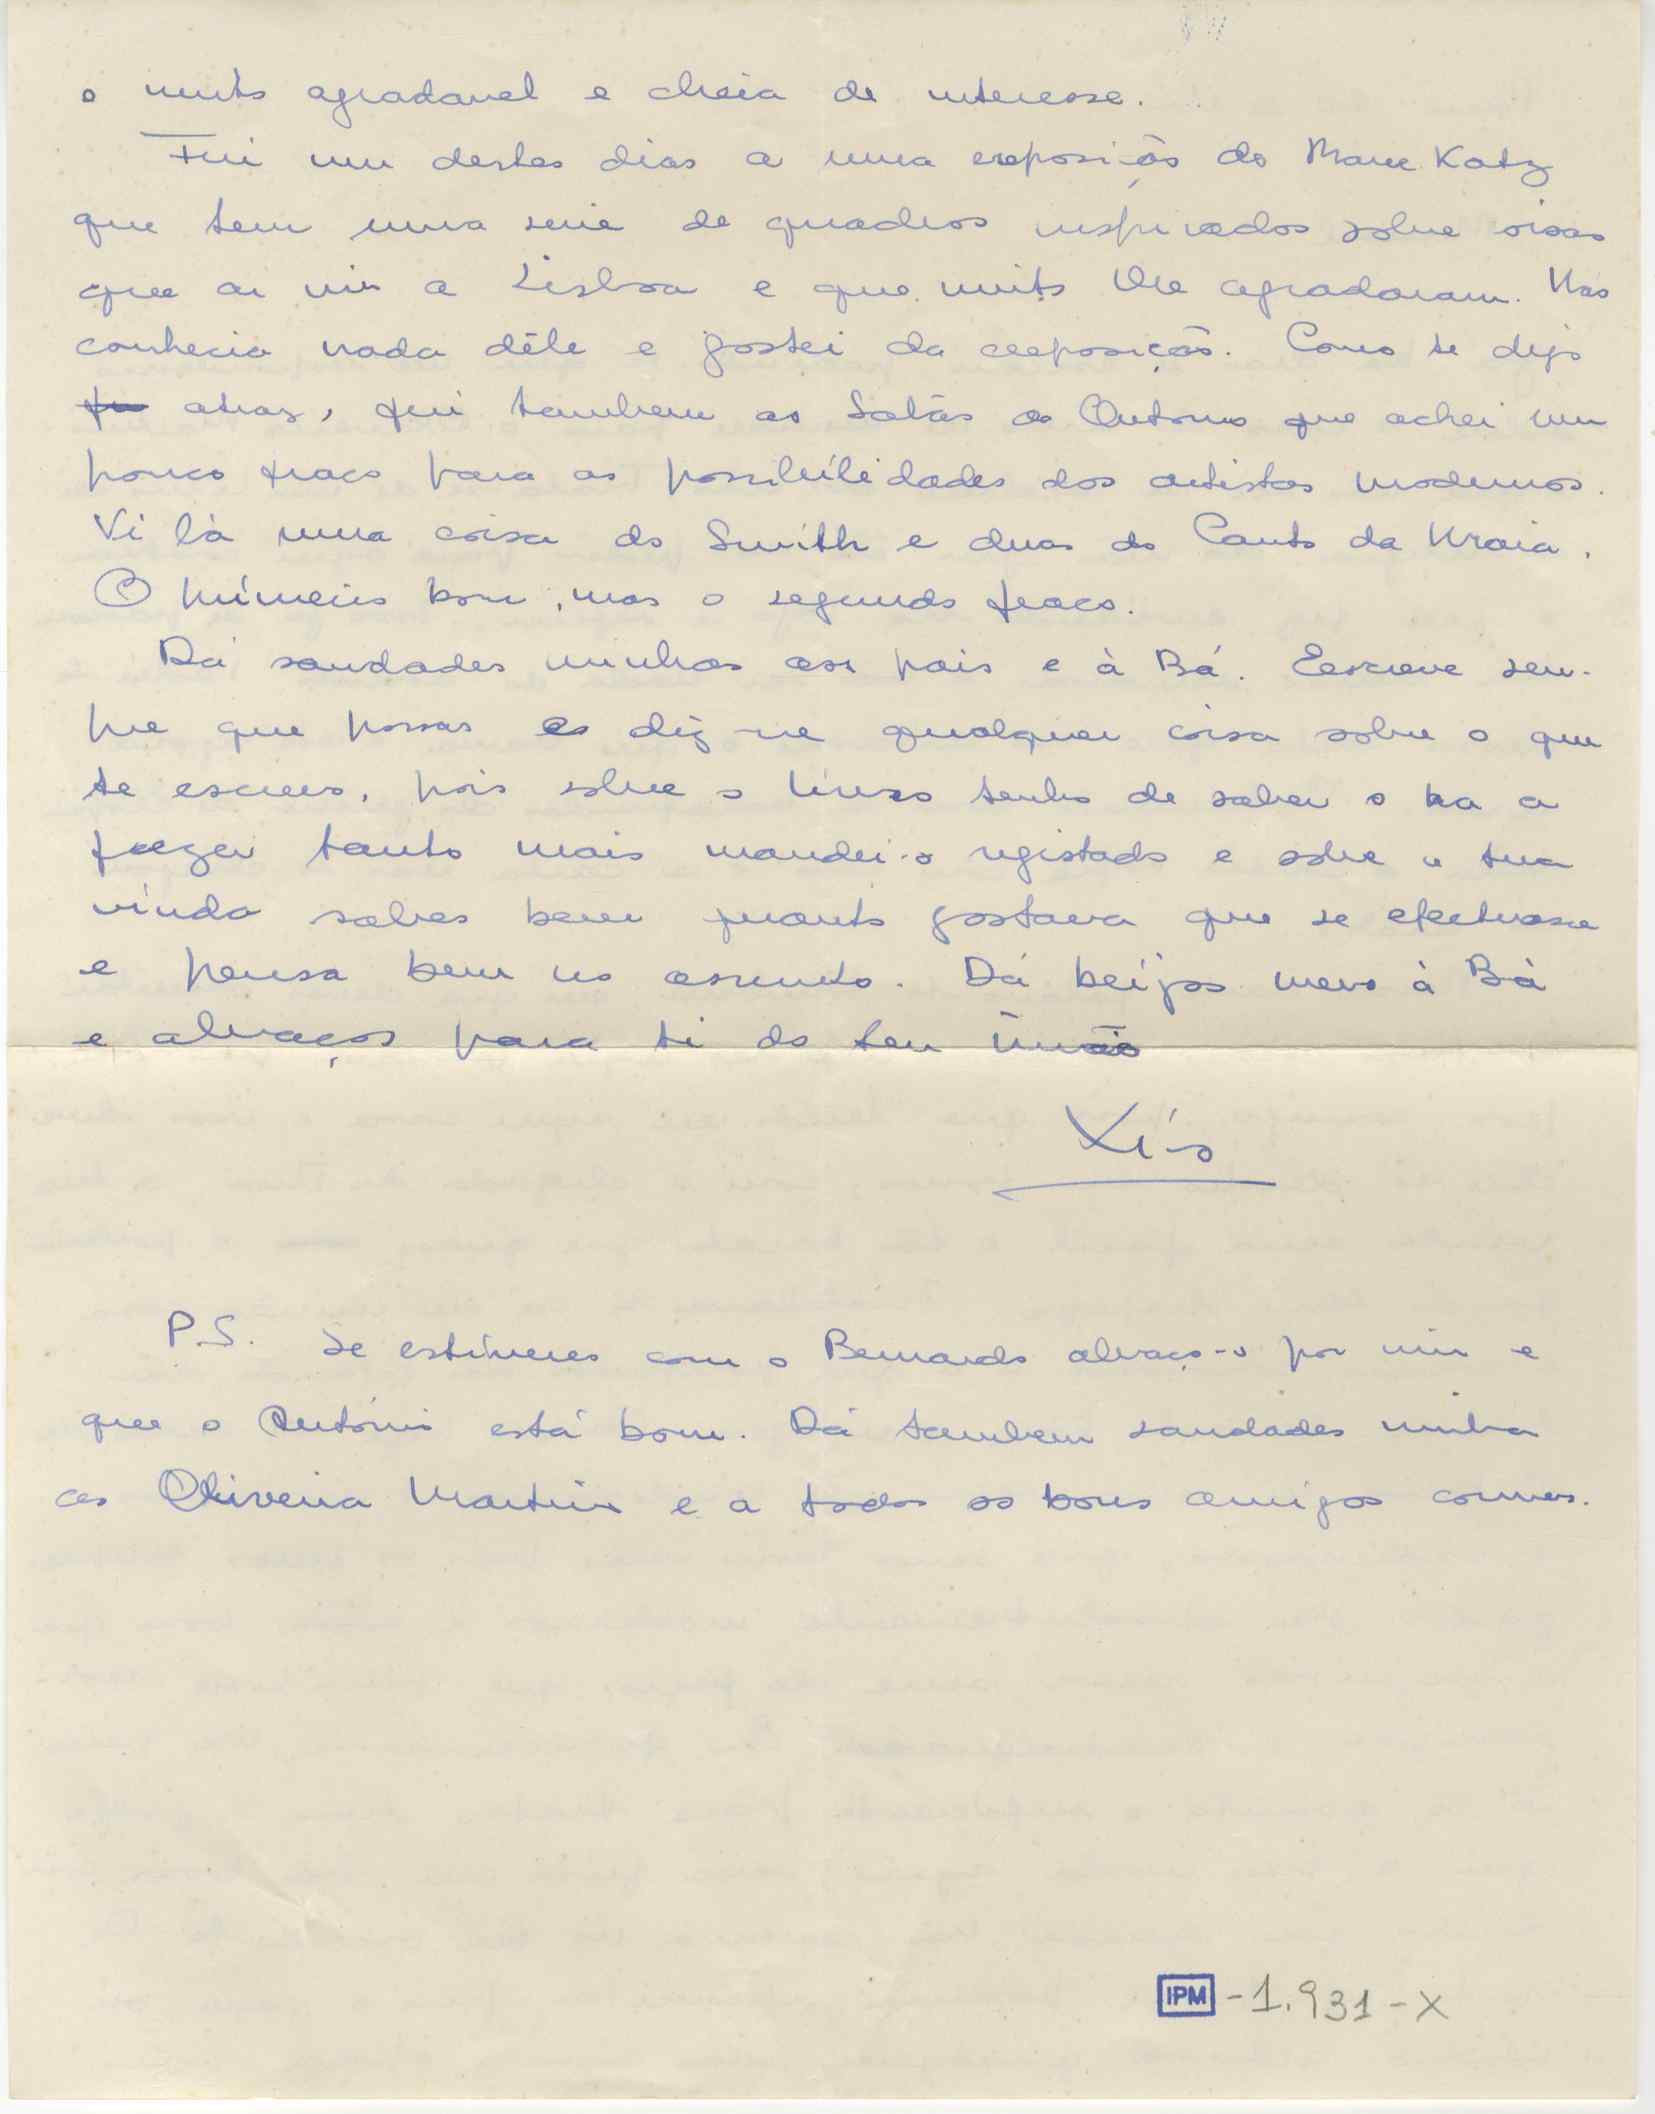 o muito agradavel e cheia de interesse.
Fui um destes dias a uma exposição do Mane Katz
que tem uma serie de quadros inspirados sobre oisas
que ai viu a Lisboa e que muito lhe agradaram. Não
conhecia nada dêle e gostei da exposição. Como te digo
atraz, fui tambem ao Salão do Outono que achei um
pouco fraco para as possibilidades dos artistas modernos.
Vi lá uma coisa do Smith e duas do Canto da Maia.
O primeiro bom, mas o segundo fraco.
Dá saudades minhas aos pais e à Bá. Escreve sem-
pre que possas e diz-me qualquer coisa sobre o que
te escrevo, pois sobre o livro tenho de saber o ha a
fazer tanto mais mandei-o registado e sobre a tua
vinda sabes bem quanto gostava que se efectuasse
e pensa bem no assunto. Dá beijos meus à Bá
e abraços para ti do teu irmão
Xi-o
P.S. Se estiveres com o Bernardo abraço-o por mim e
que o António está bom. Dá tambem saudades minha
aos Oliveira Martins e a todos os bons amigos comuns.
IPM -1.931-X